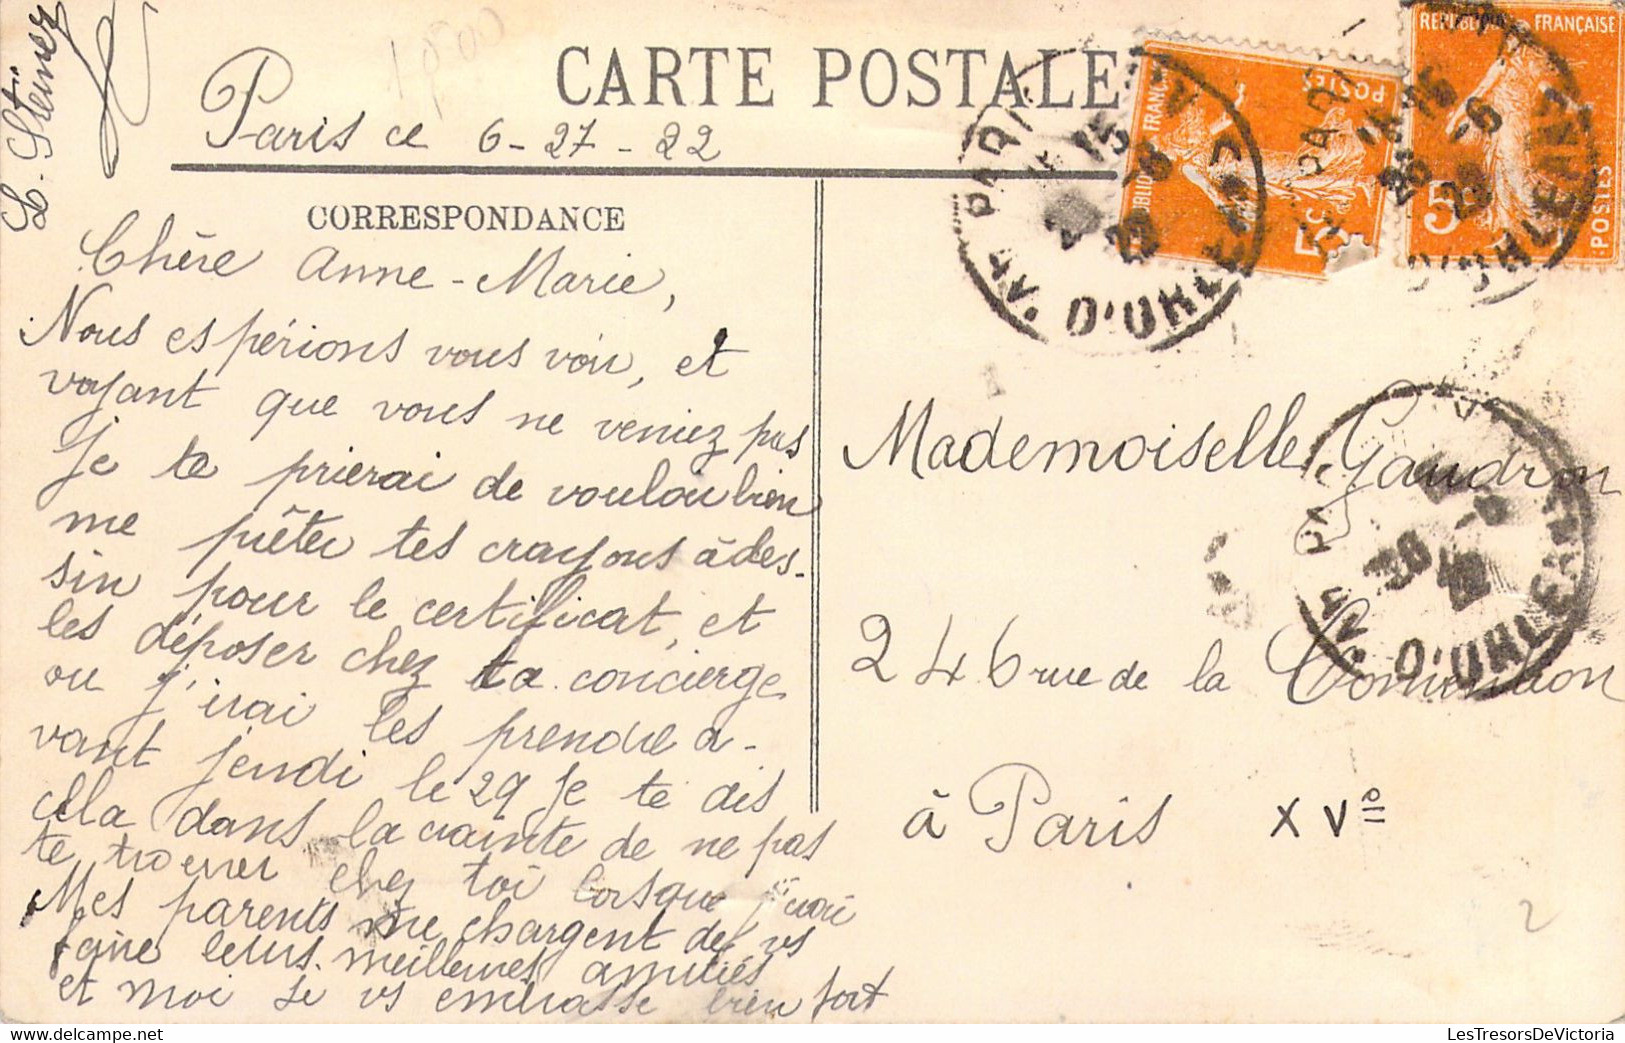 L. Steiner
CARTE POSTALE
Paris ce 6-27-22
CORRESPONDANCE
Chère Anne-Marie,
Nous espérions vous voir, et
voyant que vous ne veniez pas
Je te prierai de vouloir bien
me prêter tes crayons à des-
sin pour le certificat, et
les déposer chez ta concierge
ou j'irai les prendre a-
vant jendi le 29 Je te dis
cela dans la crainte de ne pas
te trouver chez toi lorsque j'irai
Mes parents me chargent de vs
faire leurs meilleures amitiés
et moi je vs embrasse bien fort
Mademoiselle Gaudron
246 rue de la Convention
à Paris XVº
REPUBLIQUE FRANÇAISE
5
POSTES
REPUBLIQUE FRANÇAISE
5
POSTES
PARIS
AV. D'ORLEANS
D'ORLEANS
PARIS
AV. D'ORLEANS
2
LesTresorsDeVictoria